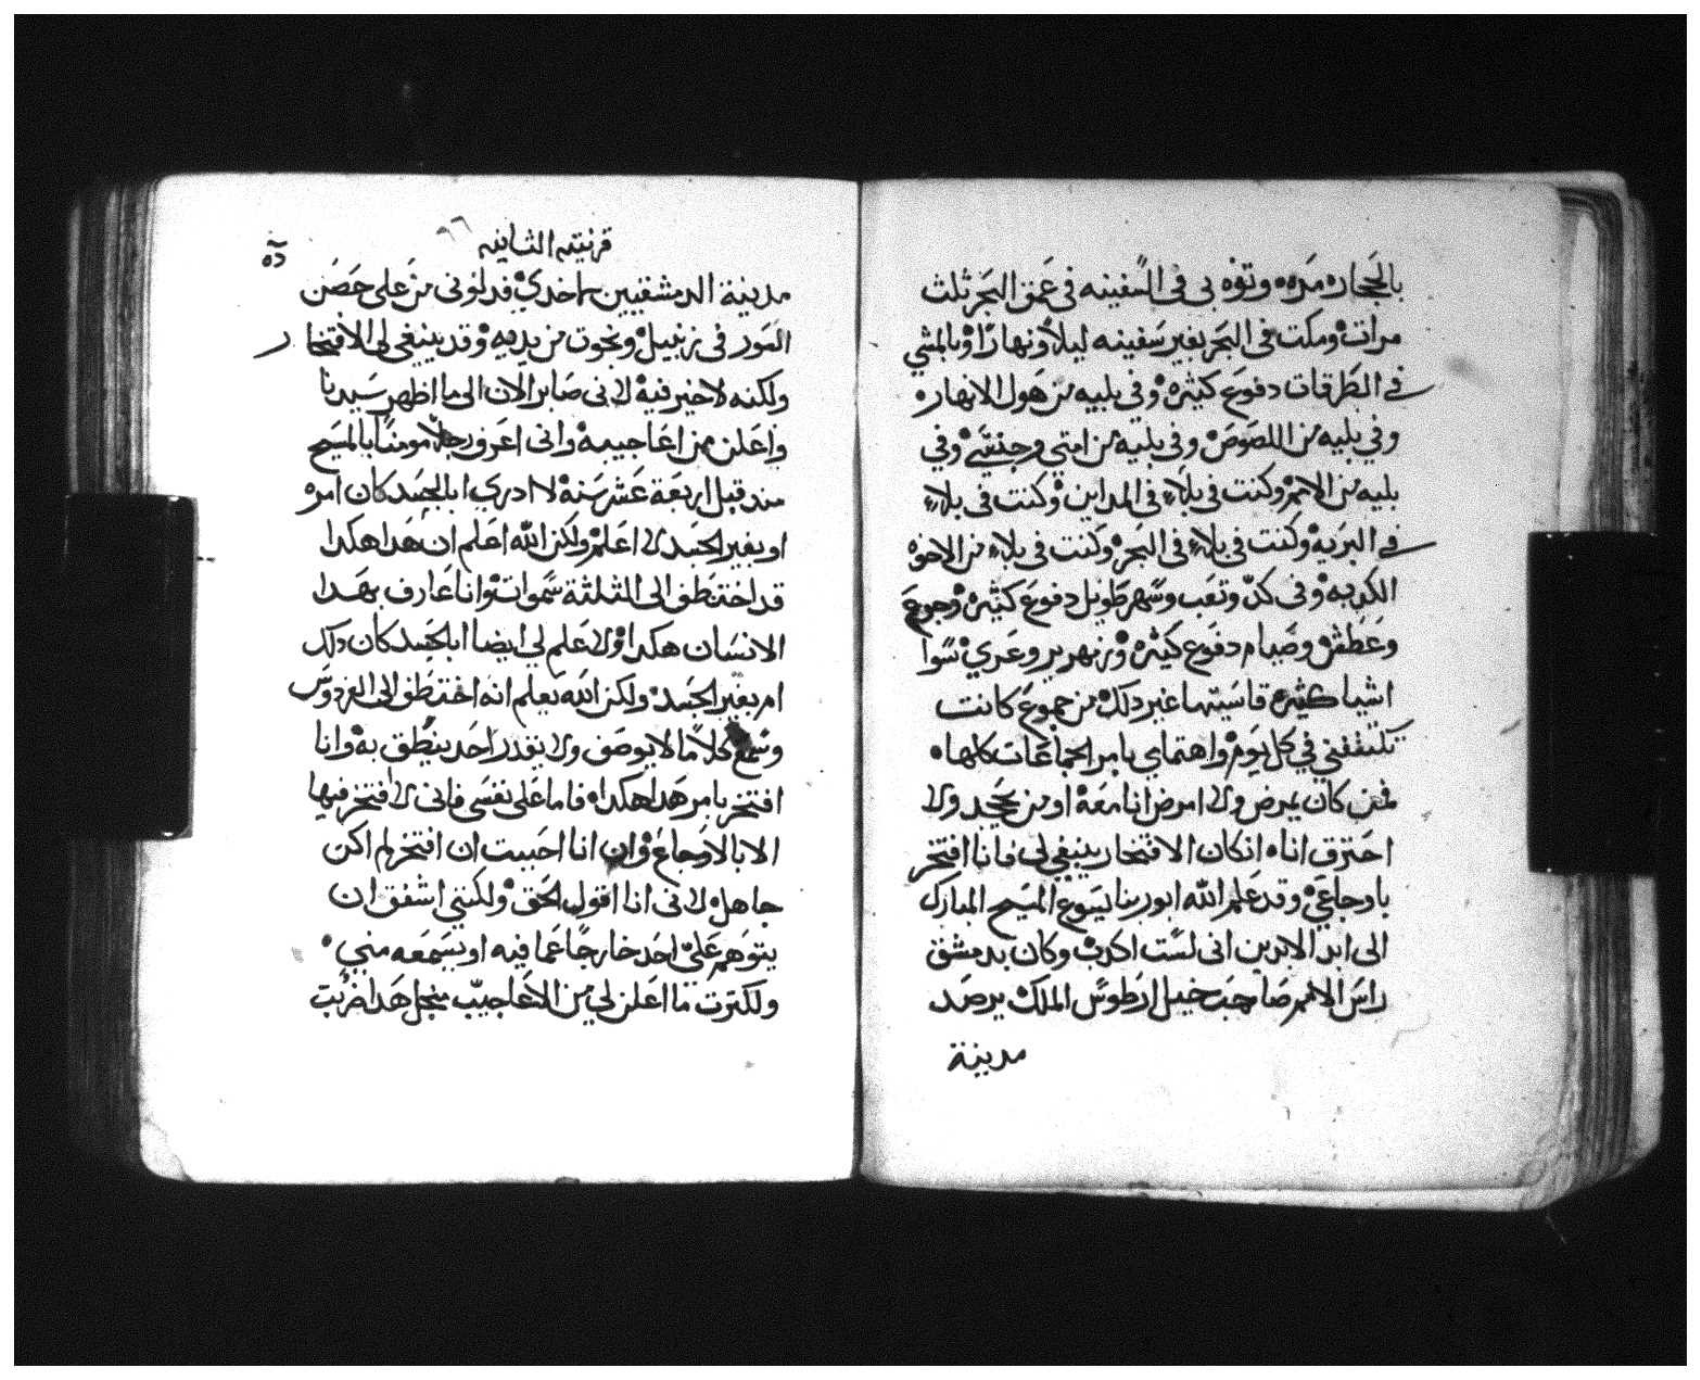 بالحجاره مره، وتوه بى فى السفينه فى عمق البحر ثلث
مرات، ومكت فى البحر بغير سفينه ليلاً ونهارًا، وبالمشي
في الطرقات دفوع كثيره، وفي بليه من هول الانهار،
وفي بليه من اللصوص، وفي بليه من امتي وجنسي، وفي
بليه من الامم، وكنت فى بلاء فى المداين، وكنت فى بلاء
في البريه، وكنت في بلاء فى البحر، وكنت فى بلاء من الاخوه
الكدبه، وفى كدّ وتعب وسهر طويل دفوع كثيره، وجوع
وعطش وصيام دفوع كثيره، وزمهرير وعري، سوا
اشيا كثيره قاسيتها غير دلك، من جموع كانت
تكتنفني في كل يوم، واهتمامي بامر الجماعات كلها،
فمن كان يمرض ولا امرض انا معه، او من يجحد ولا
احترق انا، ان كان الافتخار ينبغي لى فانا افتخر
باوجاعي، وقد علم الله ابو ربنا يسوع المسيح المبارك
الى ابد الابدين انى لست اكدب، وكان بدمشق
راس الامم صاحب خيل ارطوس الملك يرصد
مدينة
قرنتيه الثانيه
مدينة الدمشقيين لياخدي، فدلونى من على حصن
السور فى زنبيل، ونجوت من يديه، وقد ينبغي لى الافتخار
ولكنه لاخير فيه، لانى صاير الان الى ما اظهر سيدنا
واعلن من اعاجيبه، وانى اعرف رجلاً مومنًا بالمسيح
مند قبل اربعة عشر سنة، لا ادري ابالجسد كان امره
او بغير الجسد لا اعلم، ولكن الله اعلم ان هدا هكدا
قد اختطف الى الثلثة سموات، وانا عارف بهدا
الانسان هكدا، ولا علم لي ايضا ابالجسد كان دلك
ام بغير الجسد، ولكن الله يعلم انه اختطف الى الفردوس
وسمع كلاما لا يوصف ولا يقدر احد ينطق به، وانا
افتخر بامر هدا هكدا، فاما على نفسى فانى لا افتخر فيها
الا بالاوجاع، وان انا احببت ان افتخر لم اكن
جاهل، لانى انا اقول الحق، ولكنني اشفق ان
يتوهم علىّ احد خارجًا عما فيه او يسمعه مني،
ولكترت ما اعلن لي من الاعاجيب منجل هدا ضربت